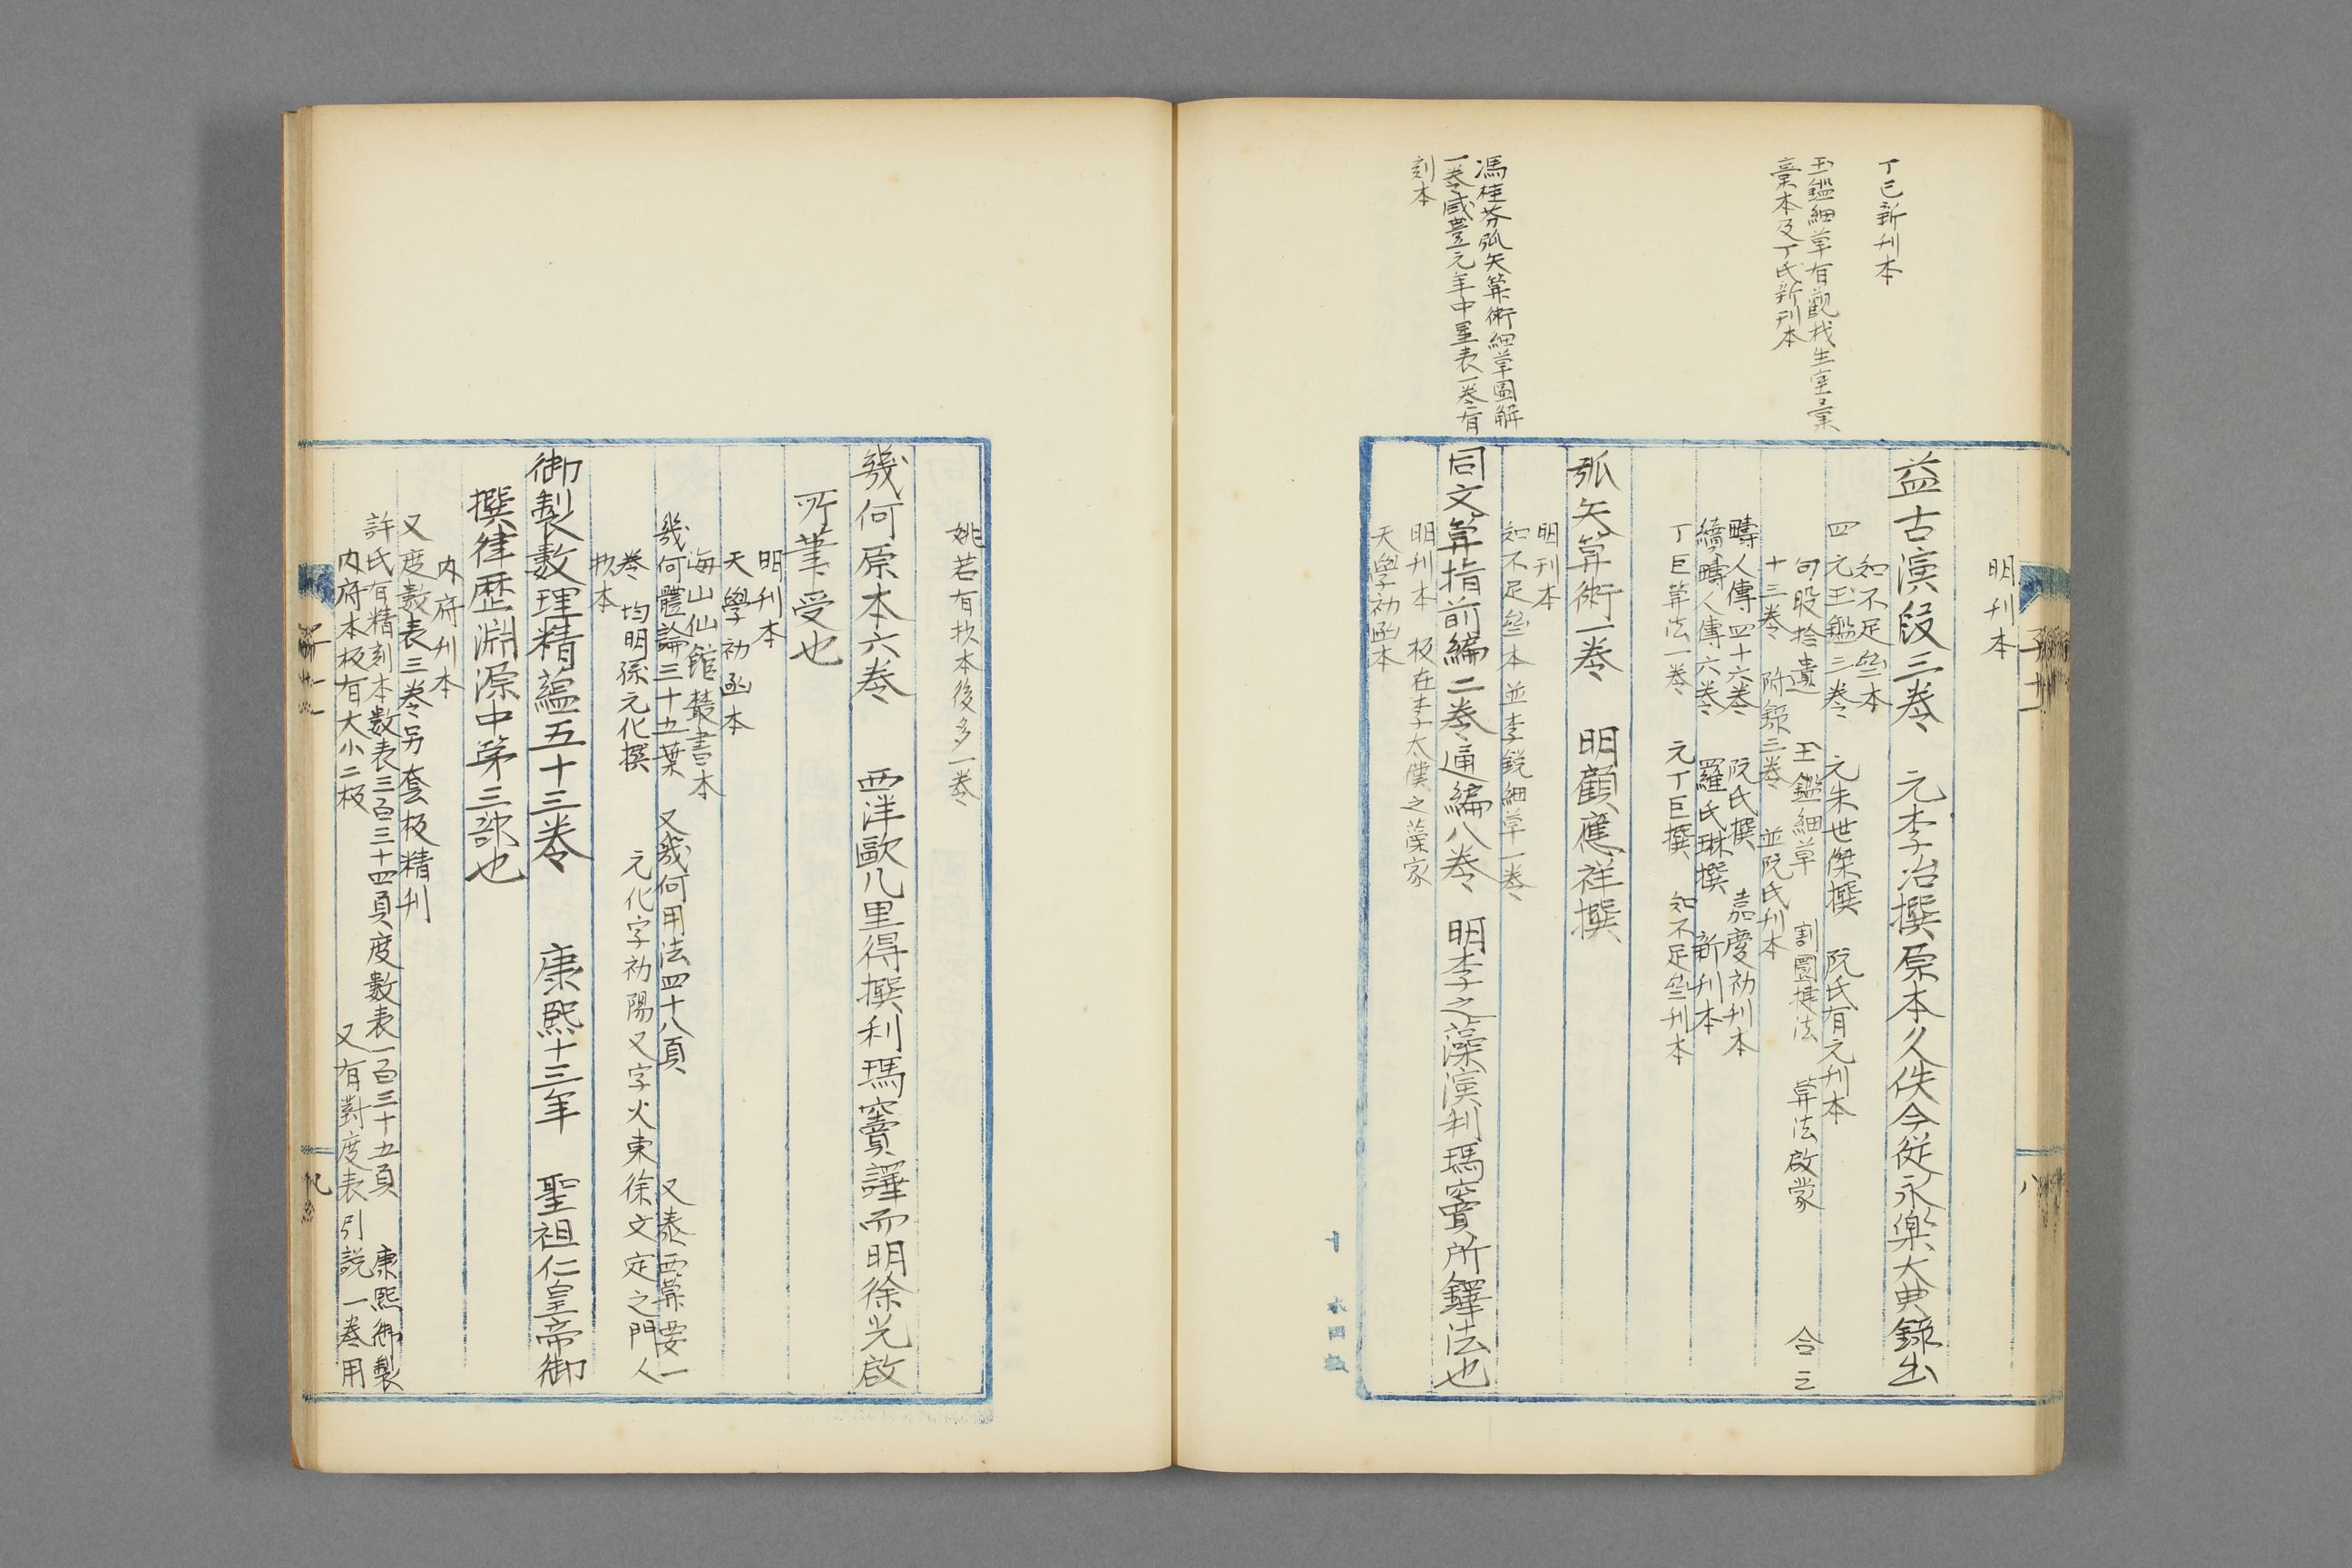 丁巳新刊本
玉鑑細草有觀我生室彙
彙本及丁氏新刊本
馮桂芬弧矢筭術細草圖解
一卷咸豐元年中星表一卷有
刻本
子十一
八
明刊本
益古演段三卷 元李冶撰原本久佚今從永樂大典錄出
知不足叁本
四元玉鑑三卷 元朱世傑撰 阮氏有元刊本
句股拾遺 玉鑑細草 割圜捷法 筭法啟蒙 合三
十三卷 附錄三卷 並阮氏刊本
疇人傳四十六卷 阮氏撰 嘉慶初刊本
續疇人傳六卷 羅氏琳撰 新刊本
丁巨筭法一卷 元丁巨撰 知不足叁刊本
弧矢筭術一卷 明顧應祥撰
明刊本
知不足叁本 並李銳細草一卷
同文筭指前編二卷通編八卷 明李之藻演利瑪竇所鐸法也
明刊本 板在李太僕之藻家
天學初函本
姚若有抄本後多一卷
幾何原本六卷 西洋歐几里得撰利瑪竇譯而明徐光啟
所筆受也
明刊本
天學初函本
海山仙館叢書本
幾何體論三十五葉 又幾何用法四十八頁 又泰西筭要一
卷 均明孫元化撰 元化字初陽又字火東徐文定之門人
抄本
御製數理精蘊五十三卷 康熙十三年 聖祖仁皇帝御
撰律歷淵源中第三部也
內府刊本
又度數表三卷另套板精刊
許氏有精刻本數表三百三十四頁度數表一百三十五頁 康熙御製
內府本板有大小二板 又有對度表引說一卷用